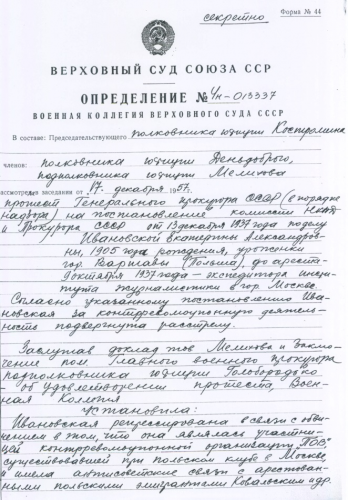 секретно
Форма № 44
ВЕРХОВНЫЙ СУД СОЮЗА ССР
ОПРЕДЕЛЕНИЕ № 4н-013337
ВОЕННАЯ КОЛЛЕГИЯ ВЕРХОВНОГО СУДА СССР
В составе: Председательствующего полковника юстиции Костромина
членов: полковника юстиции Деньдоброго,
подполковника юстиции Меликова
рассмотрев в заседании от 17 декабря 1957.
протест Генерального прокурора СССР (в порядке
надзора) на постановление комиссии НКВД
и Прокурора СССР от 13 декабря 1937 года по делу
Ивановской Екатерины Александров-
ны, 1905 года рождения, уроженки
гор. Варшавы (Польша), до ареста
октября 1937 года – экспедитора инсти-
тута журналистики в гор. Москве.
Согласно указанному постановлению Ива-
новская за контрреволюционную деятель-
ность подвергнута расстрелу.
Заслушав доклад тов Меликова и заклю-
чение пом Главного военного прокурора
подполковника юстиции Голобородько
об удовлетворении протеста Воен-
ная Коллегия
установила:
Ивановская репрессирована в связи с обви-
нением в том, что она являлась участни-
цей контрреволюционной организации "ПОВ",
существовавшей при польском клубе в Москве,
и имела антисоветские связи с арестован-
ными польскими эмигрантами Ковальским и др.